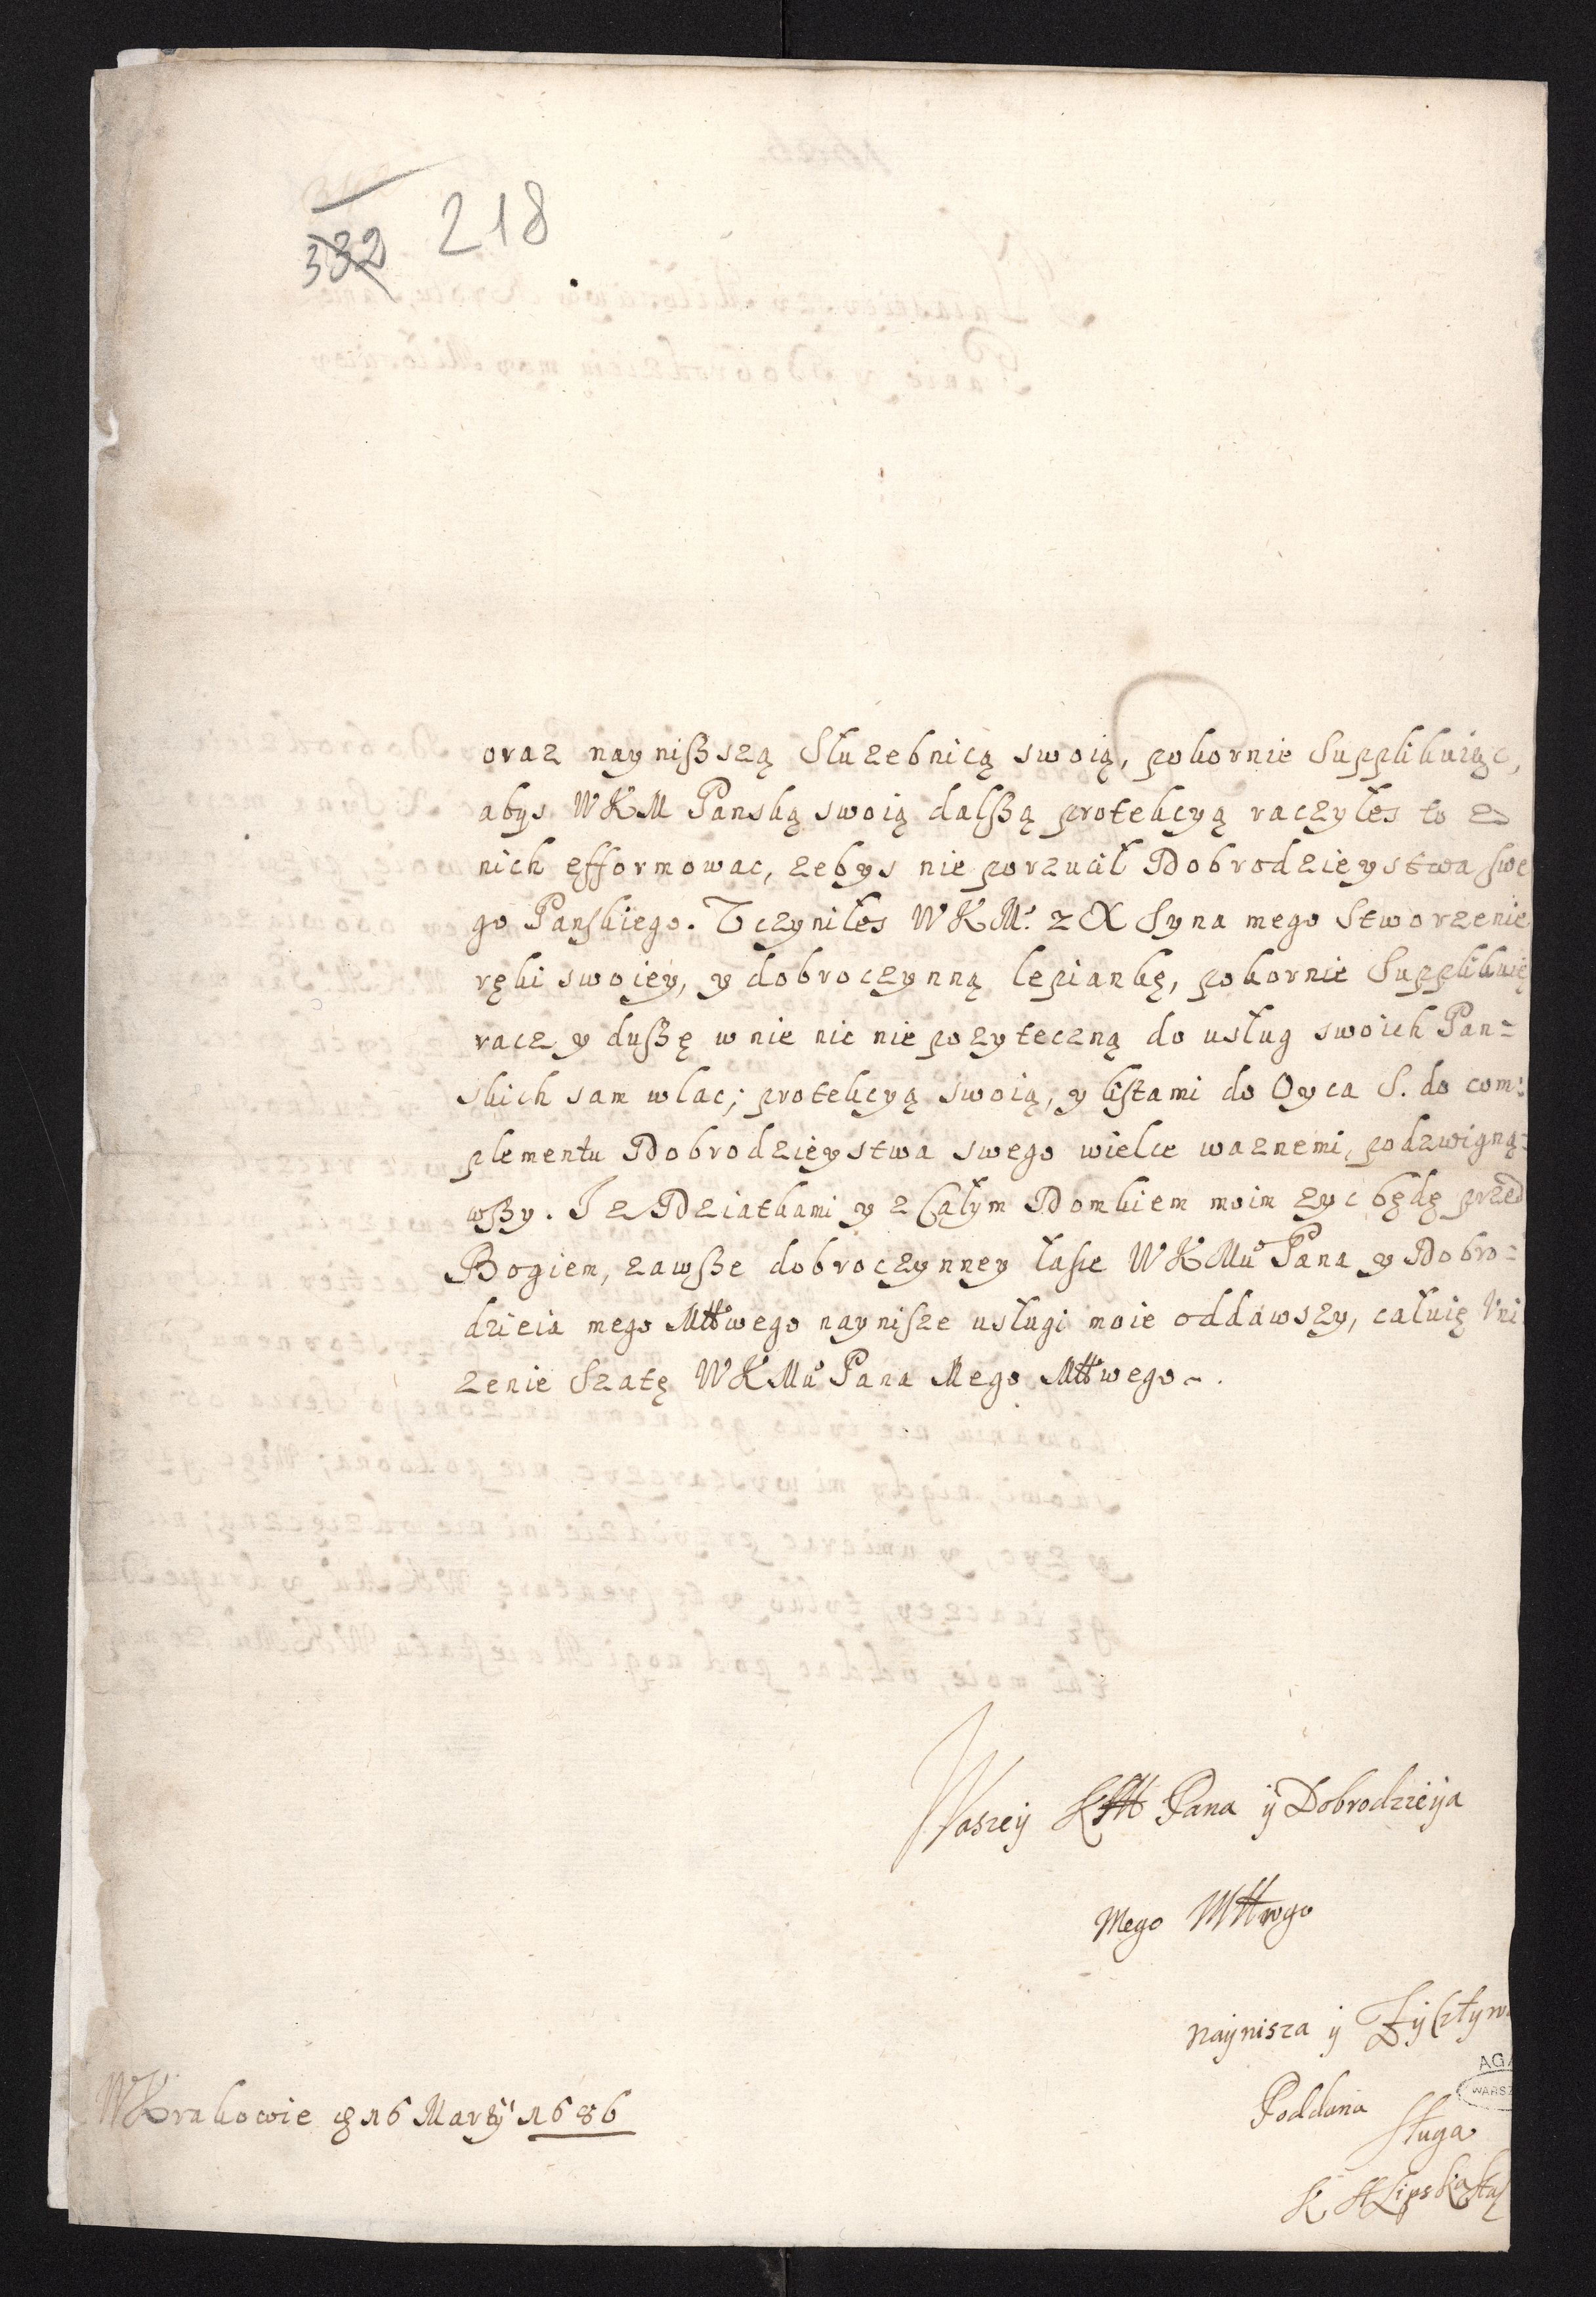 332 218
oraz naynißszą Służebnicą swoią, pokornie Supplikuiąc,
abys WKM Panską swoią dalßą protekcyą raczyłes to z
nich efformowac, zebys nie porzucił Dobrodzieystwa swe
go Panskiego. Uczyniłes WKM. z X Syna mego Stworzenie
ręki swoiey, y dobroczynną lepiankę, pokornie Supplikuię
racz y dußę w nie nic nie pozyteczną do usług swoich Pan=
skich sam wlac; protekcyą swoią, y listami do Oyca S. do com:
plementu Dobrodzieystwa swego wielce waznemi, podzwigną=
wßy. I z Dziatkami y z Całym Domkiem moim zyc będę przed
Bogiem, zawße dobroczynney łasce WKMci Pana y Dobro=
dzieia mego Mttwego naynisze usługi moie oddawszy, całuię Uni
zenie Szatę WKMci Pana Mego Mttwego.
Waszey KM Pana ÿ Dobrodzieÿa
Mego Mttwgo
Naÿnisza ÿ Zÿczływ
Poddana
Sługa
K H Lipska
WKrakowie 16 Marty 1686
AGA
WARSZ